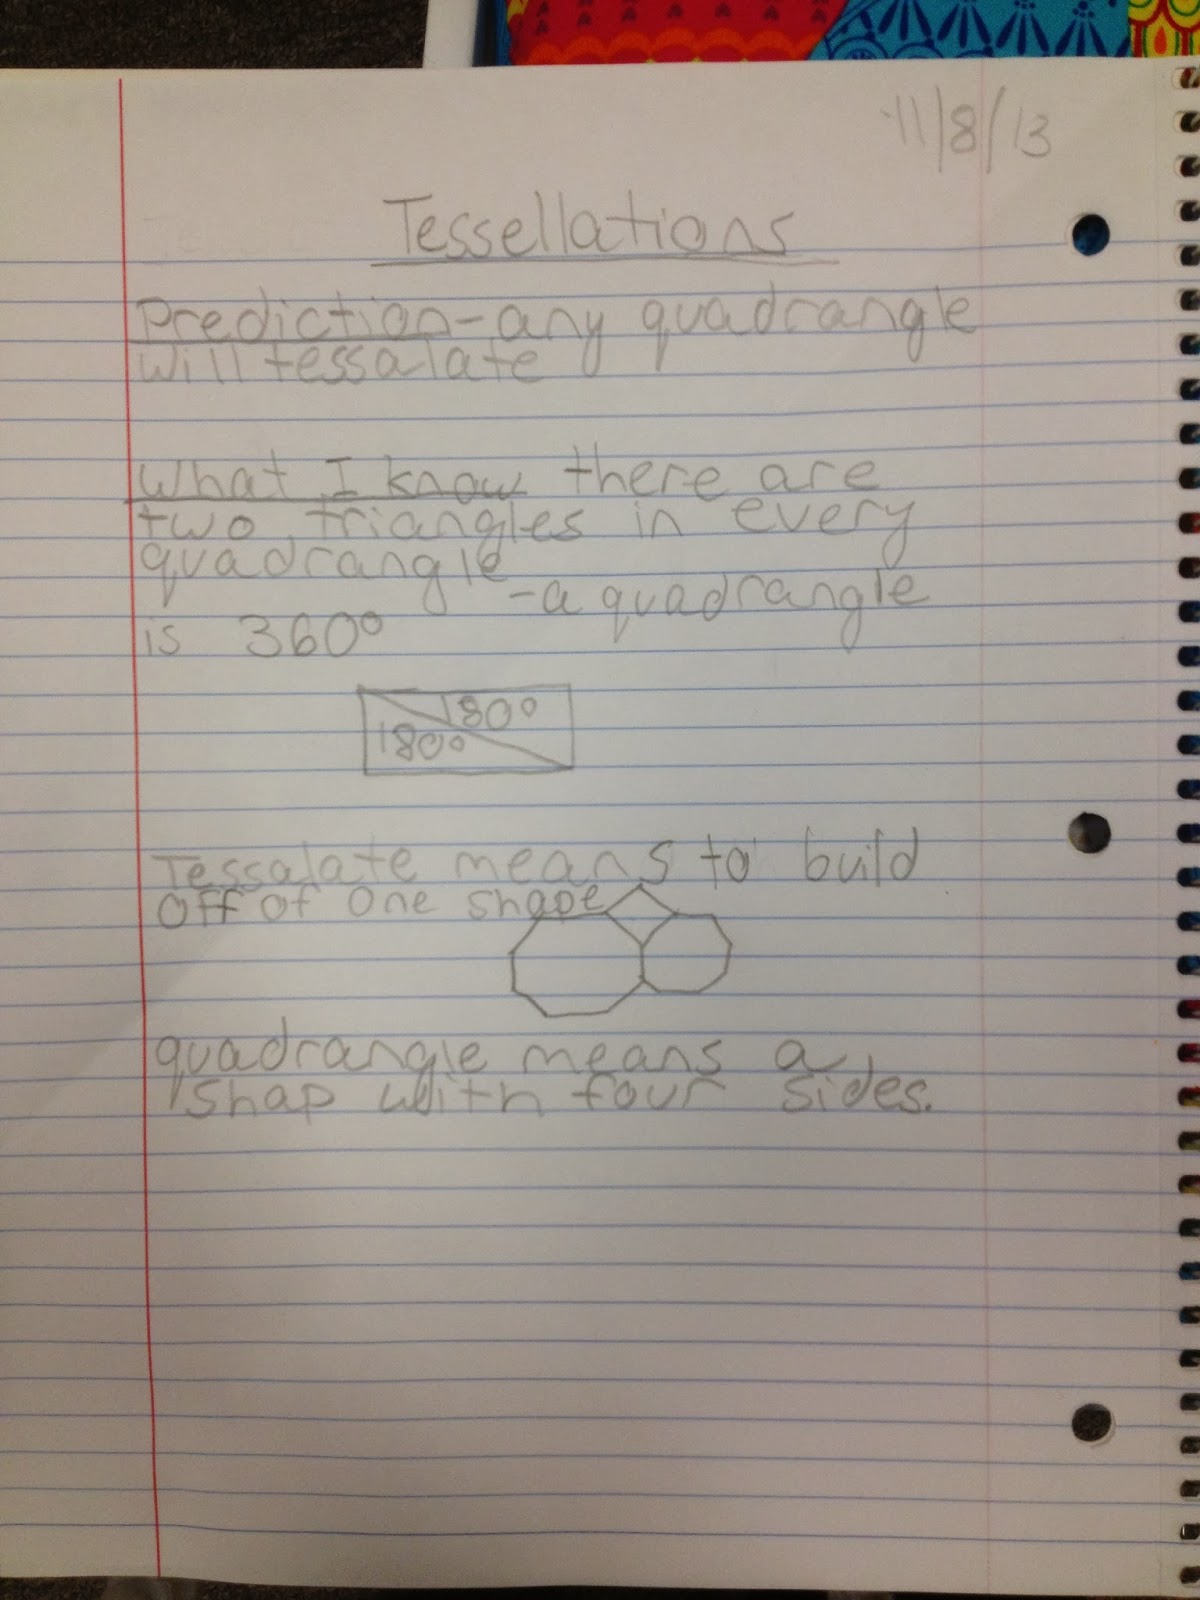 11/8/13
Tessellations
Prediction-any quadrangle
will tessalate
What I know there are
two triangles in every
quadrangle
-a quadrangle
is 360°
180°
180°
Tessalate means to build
off of one shape
quadrangle means a
shap with four sides.